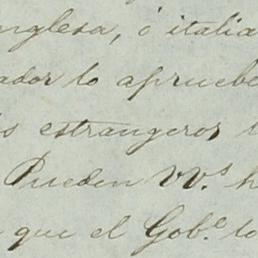 inglesa, ó italia
ador lo apruebe
s estrangeros
Pueden VV.s h
que el Gob.e lo